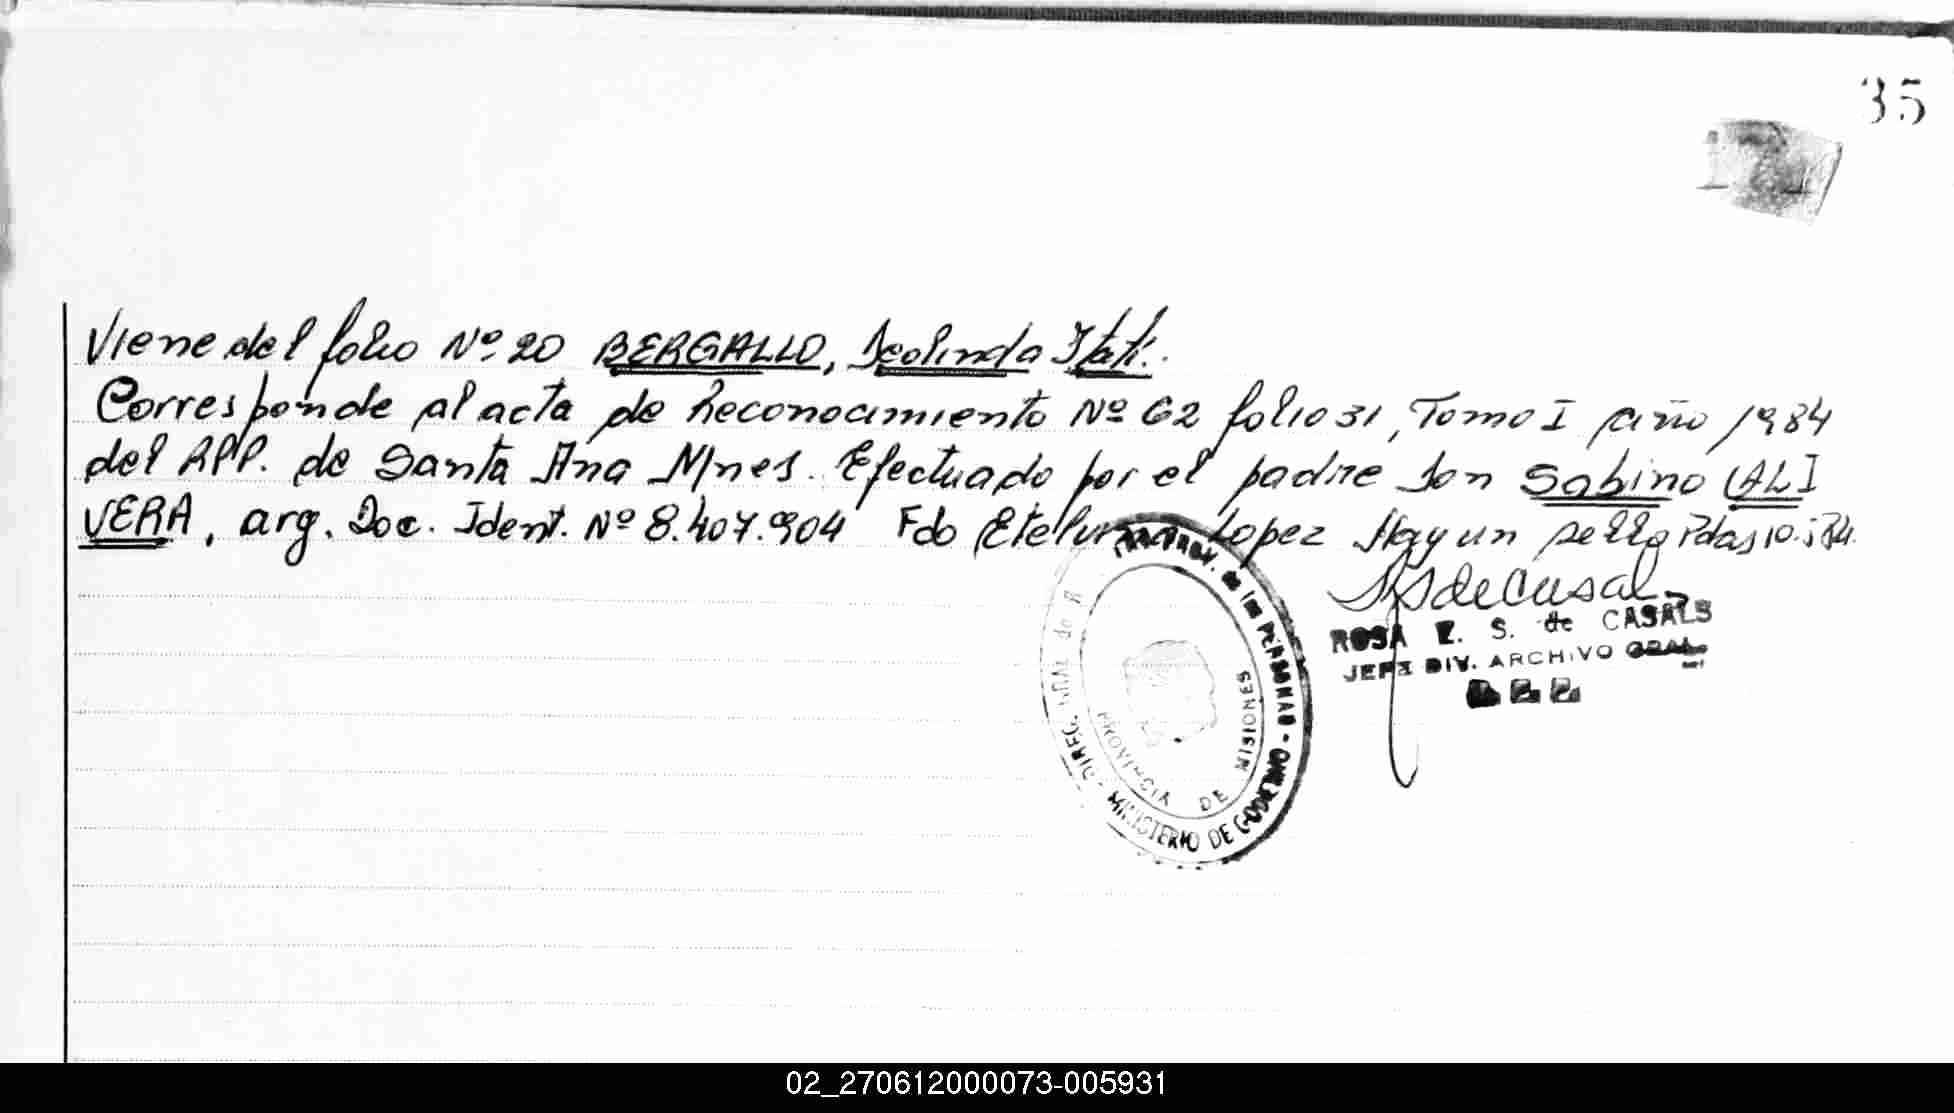 35
Viene del folio Nº 20 BERGALLO, Deolinda Itatí.
Corresponde al acta de Reconocimiento Nº 62 folio 31, Tomo I año 1984
del RPP. de Santa Ana Mnes. Efectuado por el padre Don Sabino OLI
VERA, arg. Doc. Ident. Nº 8.407.904 Fdo Etelvina Lopez Hay un sello Pdas
ROSA E. S. de CASALS
JEFE DIV. ARCHIVO GRAL.
DIREC. GRAL de PROV. de las PERSONAS - MINISTERIO DE GOBIERNO
PROVINCIA DE MISIONES
02_270612000073-005931